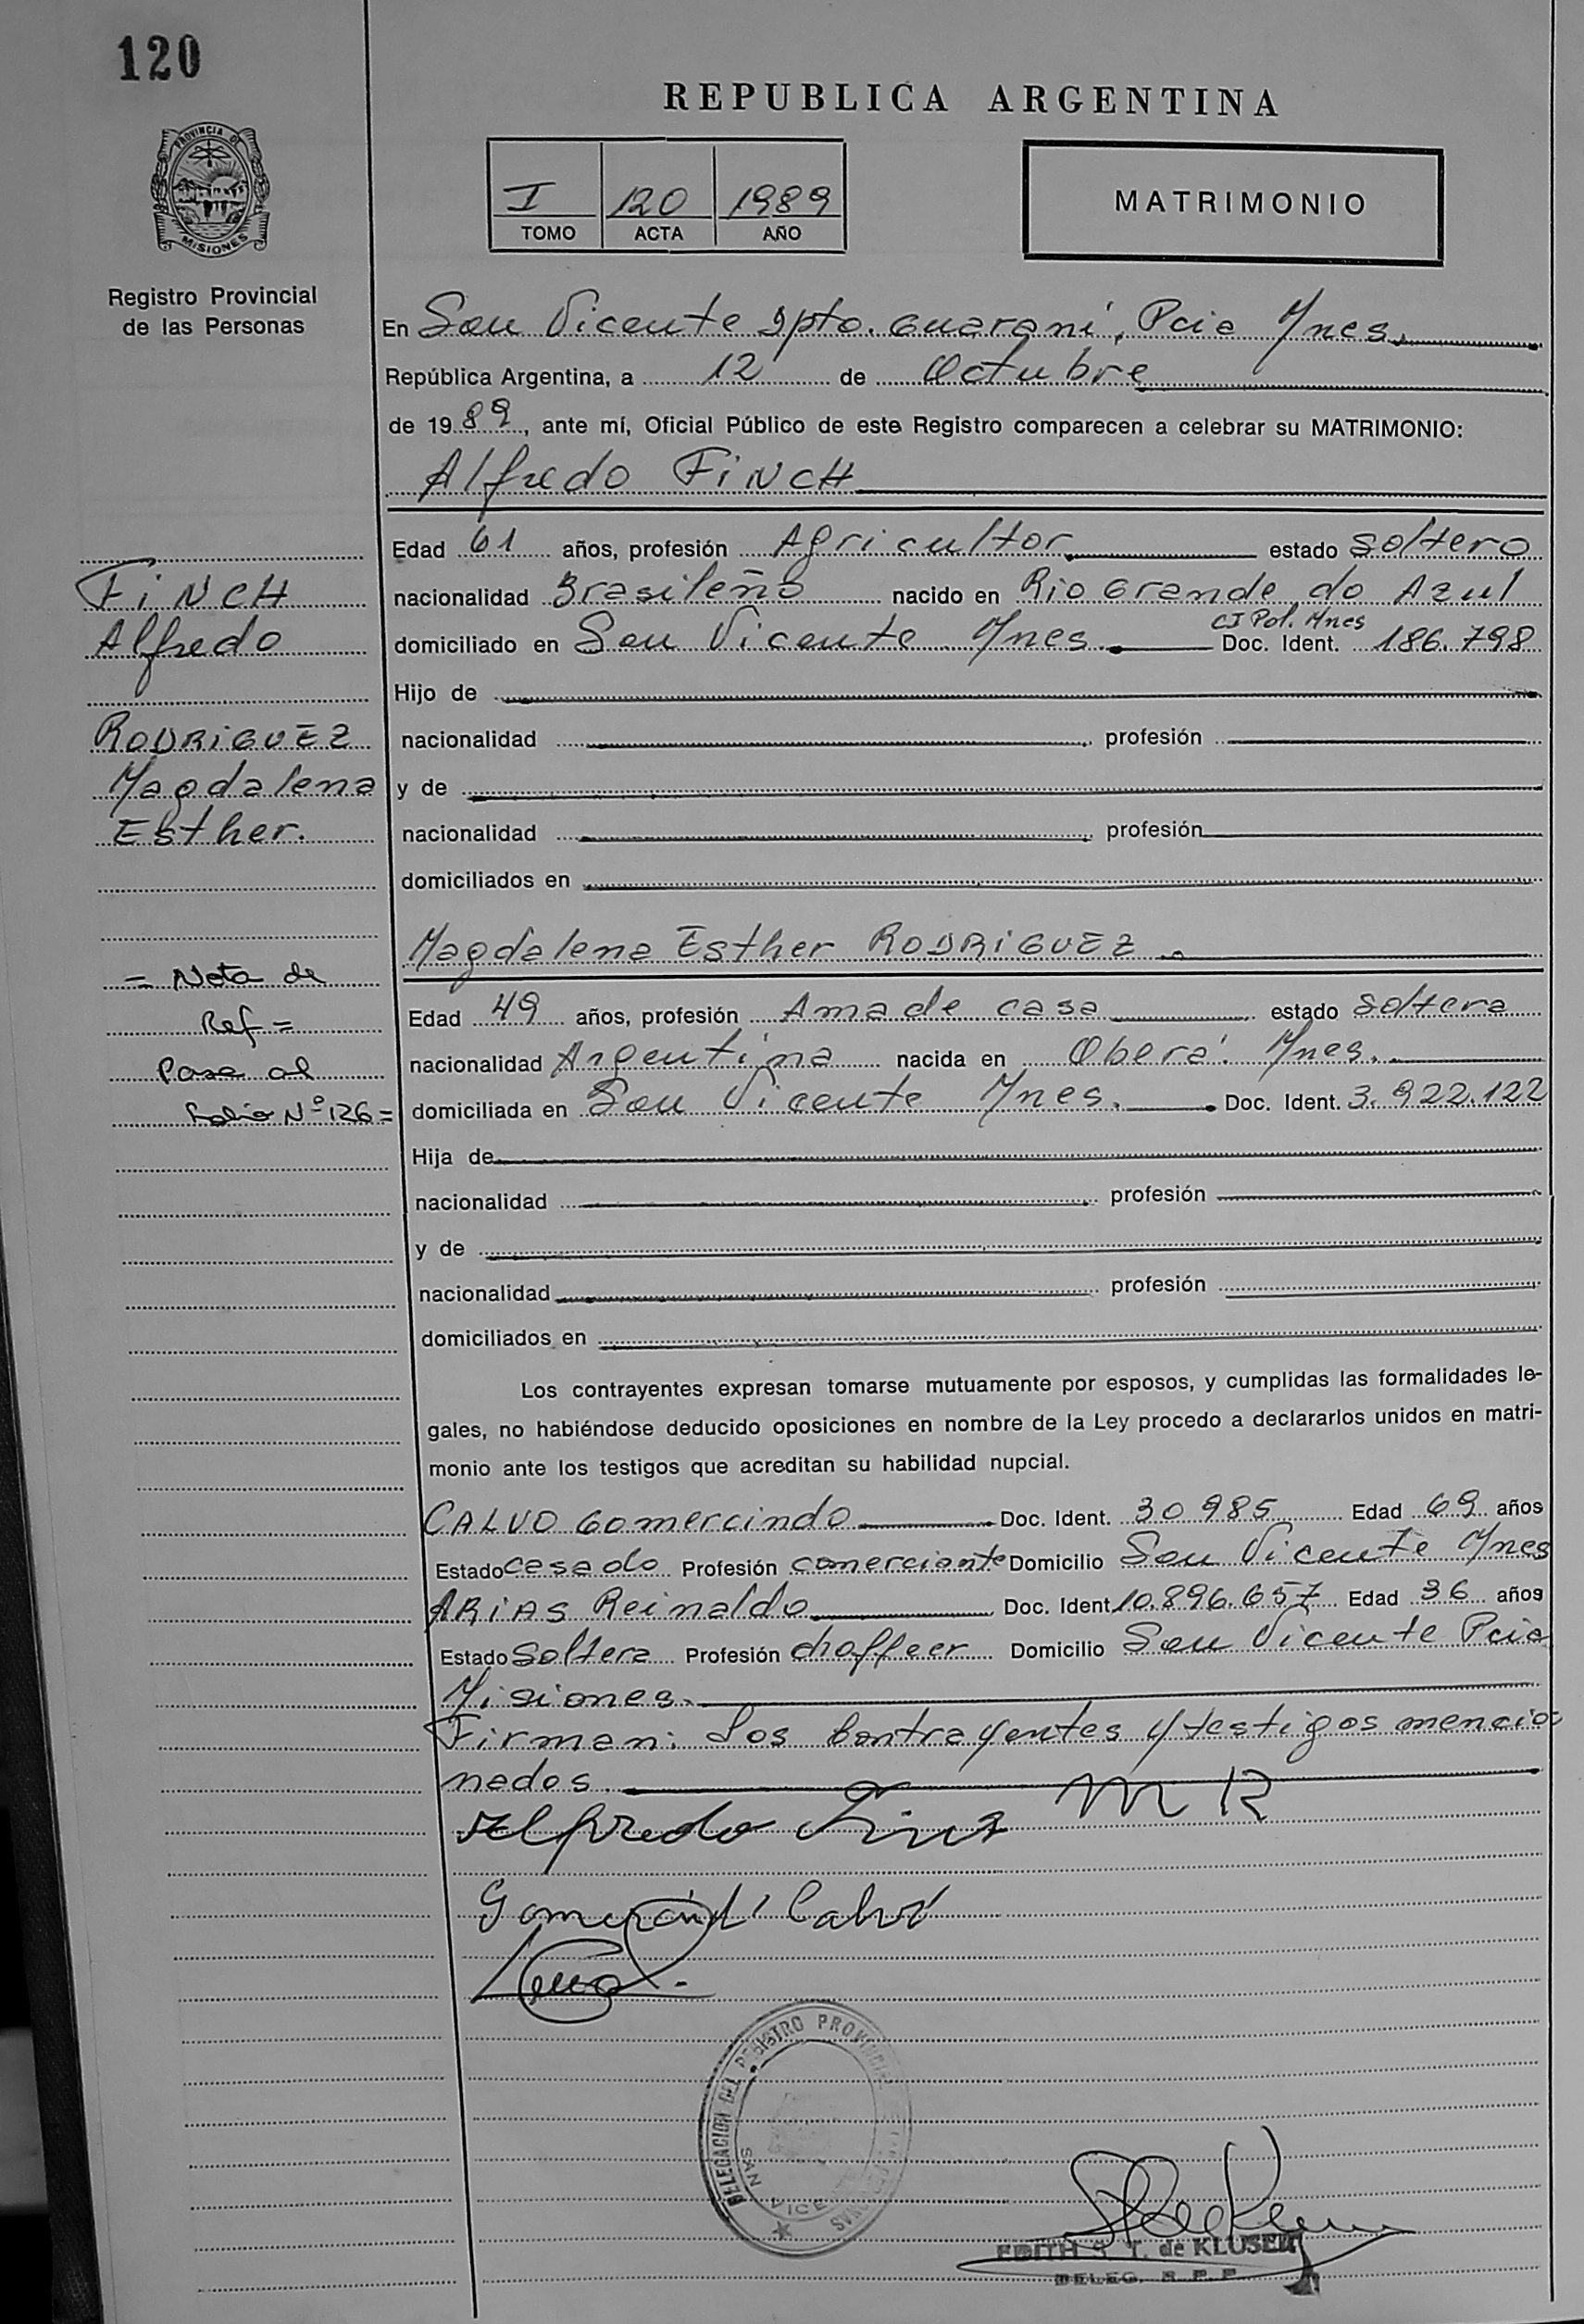 120
REPUBLICA ARGENTINA
PROVINCIA DE
MISIONES
I 120 1989
TOMO ACTA AÑO
MATRIMONIO
Registro Provincial
de las Personas
En San Vicente Dpto. Guaraní, Pcia Mnes.
República Argentina, a 12 de Octubre
de 1989, ante mí, Oficial Público de este Registro comparecen a celebrar su MATRIMONIO:
Alfredo FiNCH
Edad 61 años, profesión Agricultor estado soltero
FiNCH
nacionalidad Brasileño nacido en Rio Grande do Azul
Alfredo
CI Pol. Mnes
domiciliado en San Vicente Mnes. Doc. Ident. 186.798
Hijo de
RODRiGUEZ
nacionalidad profesión
Magdalena
y de
Esther.
nacionalidad profesión
domiciliados en
Magdalena Esther RODRiGUEZ
= Nota de
Ref =
Pasa al
Folio Nº 126 =
Edad 49 años, profesión Ama de casa estado soltera
nacionalidad Argentina nacida en Oberá. Mnes.
domiciliada en San Vicente Mnes. Doc. Ident. 3.922.122
Hija de
nacionalidad profesión
y de
nacionalidad profesión
domiciliados en
Los contrayentes expresan tomarse mutuamente por esposos, y cumplidas las formalidades le-
gales, no habiéndose deducido oposiciones en nombre de la Ley procedo a declararlos unidos en matri-
monio ante los testigos que acreditan su habilidad nupcial.
CALVO Gomercindo Doc. Ident. 30985 Edad 69 años
Estado casado Profesión comerciante Domicilio San Vicente Mnes
ARiAS Reinaldo Doc. Ident 10.896.657 Edad 36 años
Estado Soltera Profesión choffeer Domicilio San Vicente Pcia
Misiones.
Firman: Los Contrayentes y testigos mencio
nados
Alfredo M R
Calvo
DELEGACION DEL REGISTRO PROVINCIAL
SAN VICE
EDITH S. T. de KLUSER
DELEG. R. P. P.